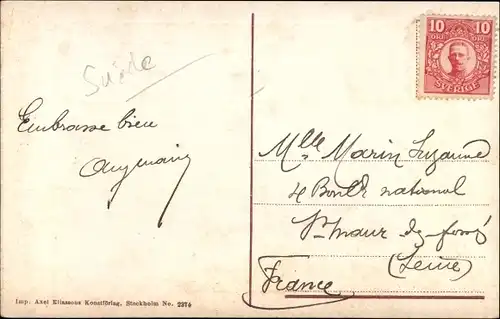 Suède
Embrasse bien
10 10
ÖRE ÖRE
SVERIGE
Mlle Marin Suzanne
4 Boulv national
St Maur des fossés
(Seine)
France
Imp. Axel Eliassons Konstförlag, Stockholm No. 2374